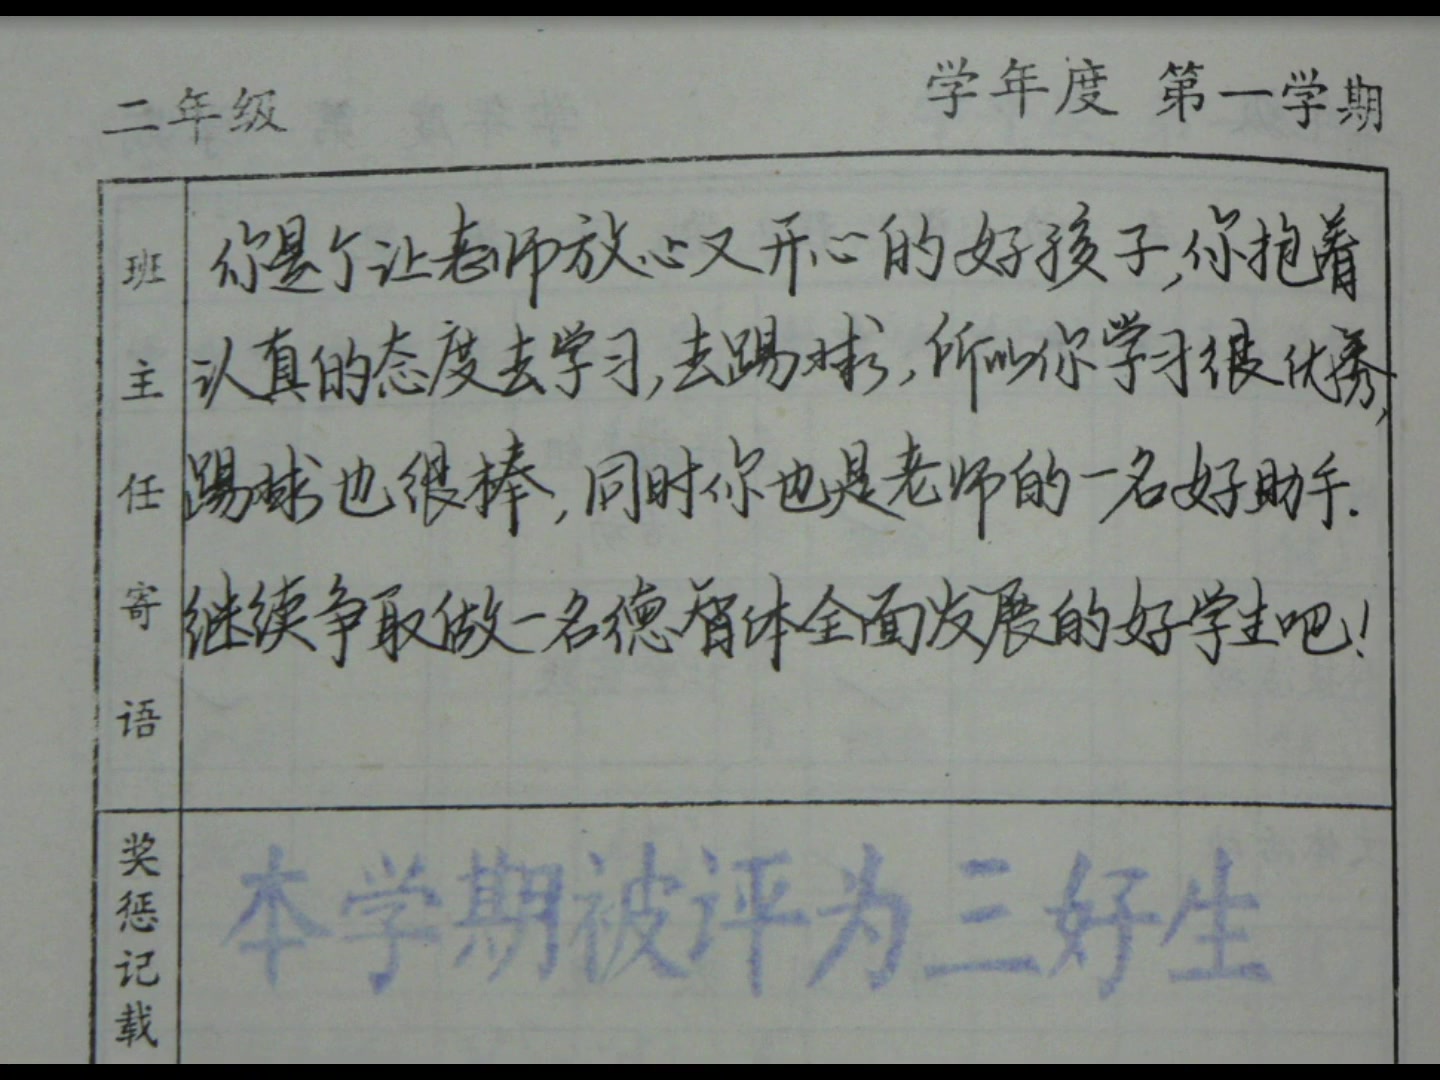 二年级 学年度 第一学期
班主任寄语
你是个让老师放心又开心的好孩子,你抱着
认真的态度去学习,去踢球,所以你学习很优秀,
踢球也很棒,同时你也是老师的一名好助手.
继续争取做一名德智体全面发展的好学生吧!
奖惩记载
本学期被评为三好生